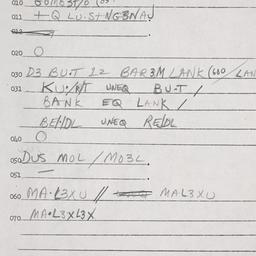 010 GOMB3T/O (OS
011 + Q LU·ST NG3NA
020 O
030 D3 BU·T 12 BAR3M LANK (600 / LAN
031 KU·/R/T UNEQ BU·T /
BANK EQ LANK /
BE/DL UNEQ RE/DL
040 O
050 DUS MOL / MO3L
051 —
060 MA·L3XU // MA·L3XU
070 MA·L3XL3X